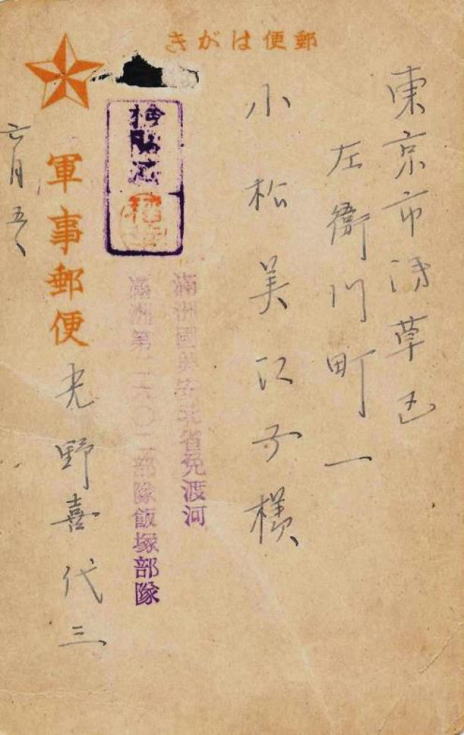 きがは便郵
東京市浅草区
左衛門町一
小松美江子様
満洲國興安北省免渡河
満洲第二六〇二部隊飯塚部隊
検閲済
軍事郵便
光野喜代三
六月五